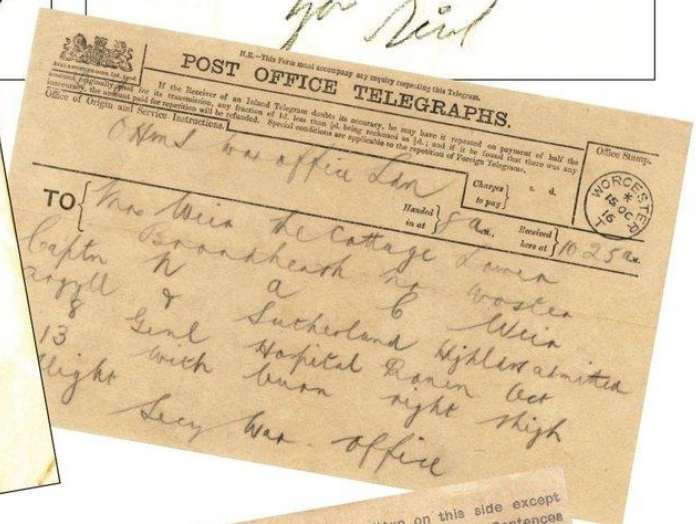 N.B.—This Form must accompany any inquiry respecting this Telegram.
POST OFFICE TELEGRAPHS.
If the Receiver of an Inland Telegram doubts its accuracy, he may have it repeated on payment of half the
amount originally paid for its transmission, any fraction of 1d. less than ½d. being reckoned as ½d.; and if it be found that there was any
inaccuracy, the amount paid for repetition will be refunded. Special conditions are applicable to the repetition of Foreign Telegrams.
Office of Origin and Service Instructions.
Office Stamp.
OHMS war office Ldn
Charges to pay } s. d.
WORCESTER
15 OC
16
TO { Handed in at } 8 a M., Received here at } 10 25 a M.
Mrs Weir the Cottage Lower
Broadheath nr
Captn N a C Weir
Argyll & Sutherland Highlrs admitted
8 Genl Hospital Rouen Oct
13 with burn right thigh
slight
Secy War Office
on this side except
Sentences